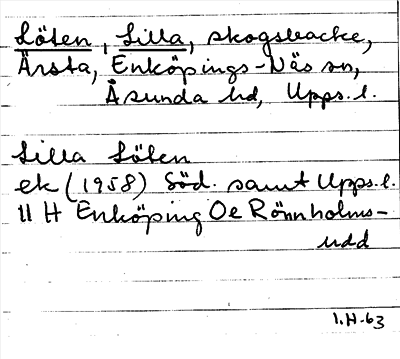 Löten, Lilla, skogsbacke,
Årsta, Enköpings-Näs sn,
Åsunda hd, Upps.l.
Lilla Löten
ek (1958) Söd. samt Upps.l.
11 H Enköping Oe Rönnholms-
udd
I.H-63